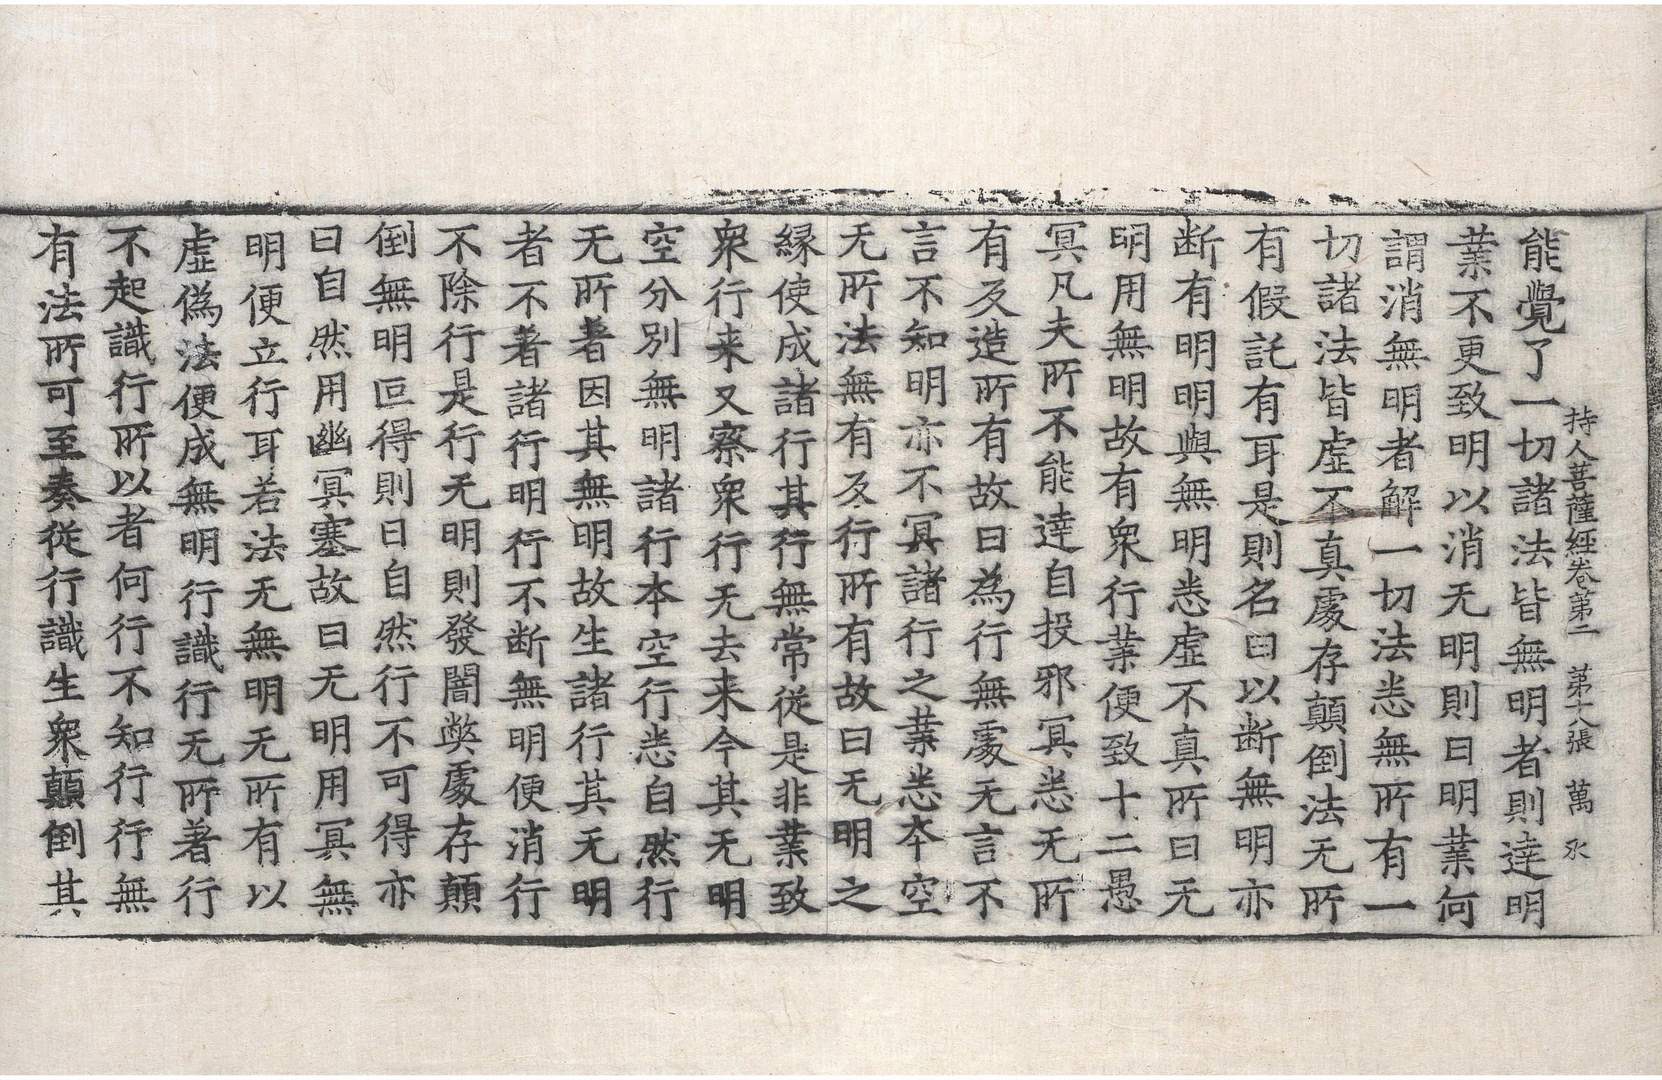 持人菩薩經卷第二　第十八張　萬　水
能覺了一切諸法皆無明者則達明
業不更致明以消无明則曰明業何
謂消無明者解一切法悉無所有一
切諸法皆虛不真處存顛倒法无所
有假託有耳是則名曰以断無明亦
断有明明與無明悉虛不真所曰无
明用無明故有衆行業便致十二愚
冥凡夫所不能達自投邪冥悉无所
有及造所有故曰為行無處无言不
言不知明亦不冥諸行之業悉本空
无所法無有及行所有故曰无明之
緣使成諸行其行無常従是非業致
衆行来又察衆行无去来今其无明
空分別無明諸行本空行悉自然行
无所著因其無明故生諸行其无明
者不著諸行明行不断無明便消行
不除行是行无明則發闇弊處存顛
倒無明叵得則曰自然行不可得亦
曰自然用幽冥塞故曰无明用冥無
明便立行耳若法无無明无所有以
虛偽法便成無明行識行无所著行
不起識行所以者何行不知行行無
有法所可至奏従行識生衆顛倒其